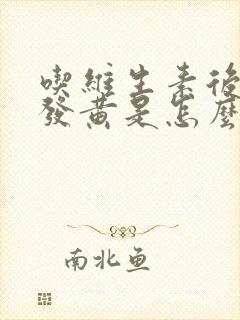 喫維生素後
發黃是怎麼
南北魚